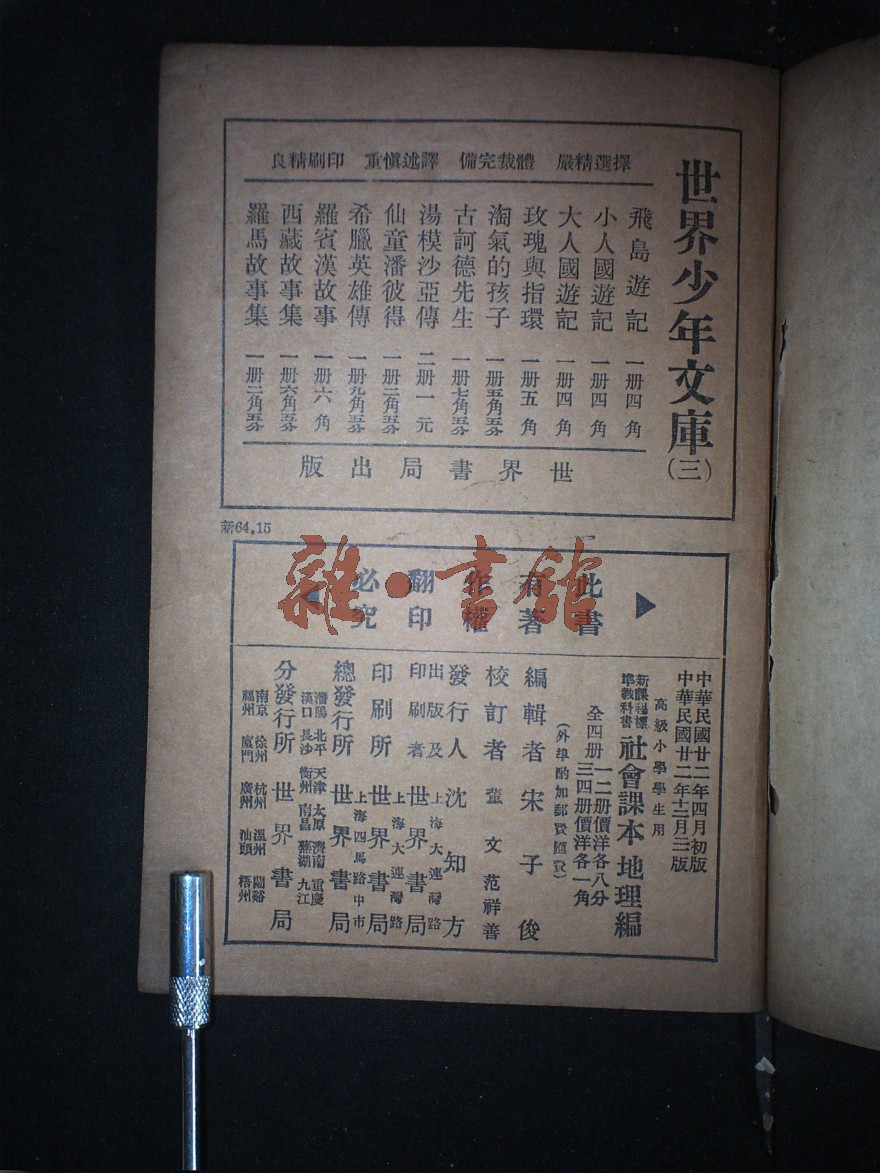 世界少年文庫(三)
擇選精嚴 體裁完備 譯述慎重 印刷精良
飛島遊記 一册四角
小人國遊記 一册四角
大人國遊記 一册四角
玫瑰與指環 一册五角
淘氣的孩子 一册五角五分
古訶德先生 一册七角五分
湯模沙亞傳 二册一元
仙童潘彼得 一册三角五分
希臘英雄傳 一册九角五分
羅賓漢故事 一册六角
西藏故事集 一册六角五分
羅馬故事集 一册二角五分
世界書局出版
新64.15
此書
有著
作權
翻印
必究
雜·書館
中華民國廿二年四月初版
中華民國廿二年十二月三版
高級小學學生用
新課程標準教科書 社會課本地理編
全四册 一二册價洋各八分 三四册價洋各一角
(外埠酌加郵費匯費)
編輯者 宋子俊
校訂者 董文 范祥善
發行人 沈知方
出版及印刷者 上海大連灣路 世界書局
印刷所 上海大連灣路 世界書局
總發行所 上海四馬路中市 世界書局
瀋陽 北平 天津 太原 濟南 重慶
漢口 長沙 衡州 南昌 蕪湖 九江
分發行所 世界書局
南京 徐州 杭州 溫州 蘭谿
福州 廈門 廣州 汕頭 梧州